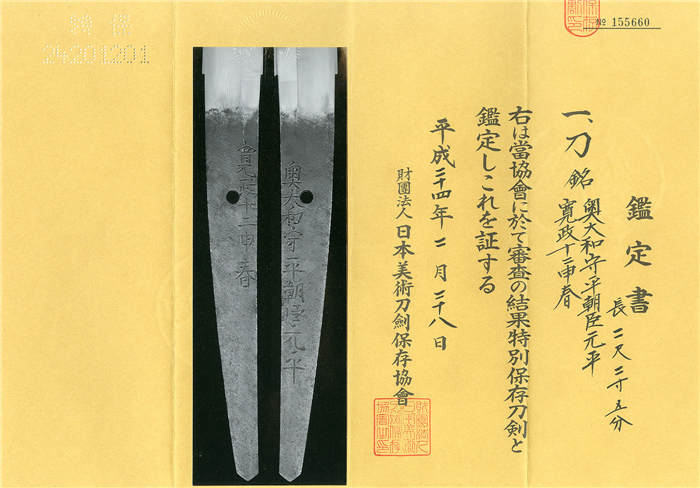 № 155660
鑑定書
一、刀 銘 奥大和守平朝臣元平
寛政十二申春
長 二尺二寸五分
右は當協會に於て審査の結果特別保存刀剣と
鑑定しこれを証する
平成二十四年二月二十八日
財團法人 日本美術刀劍保存協會
奥大和守平朝臣元平
寛政十二申春
24201201